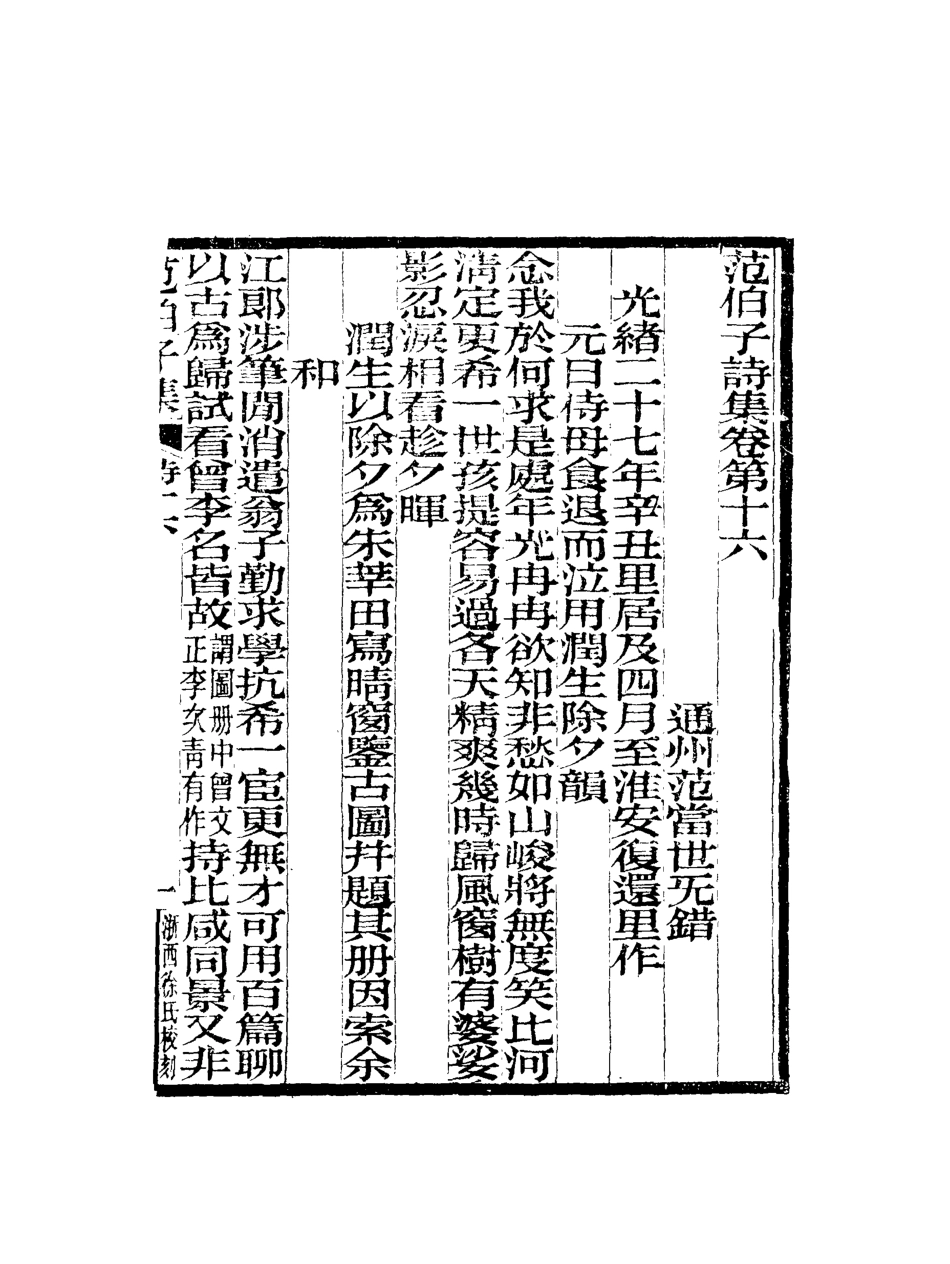 范伯子詩集卷第十六
通州范當世无錯
光緒二十七年辛丑里居及四月至淮安復還里作
元日侍母食退而泣用潤生除夕韻
念我於何求是處年光冉冉欲知非愁如山峻將無度笑比河
清定更希一世孩提容易過各天精爽幾時歸風窗樹有婆娑
影忍淚相看趁夕暉
潤生以除夕爲朱莘田寫晴窗鑒古圖并題其册因索余
和
江郎涉筆閒消遣翁子勤求學抗希一宦更無才可用百篇聊
以古爲歸試看曾李名皆故謂圖册中曾文正李次青有作持比咸同景又非
范伯子集 詩十六 一 浙西徐氏校刻